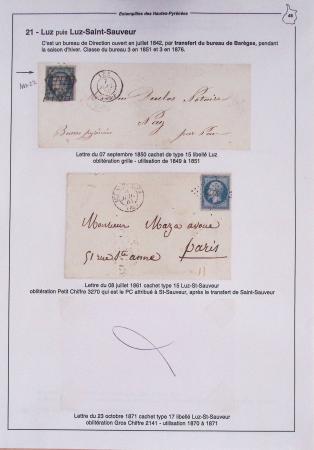 Estampilles des Hautes-Pyrénées
45
21 - Luz puis Luz-Saint-Sauveur
C'est un bureau de Direction ouvert en juillet 1842, par transfert du bureau de Barèges, pendant
la saison d'hiver. Classe du bureau 3 en 1851 et 3 en 1876.
Monsieur Duclos Notaire
à Nay
Basses pyrénées
par Pau
Lettre du 07 septembre 1850 cachet de type 15 libellé Luz
oblitération grille - utilisation de 1849 à 1851
Monsieur Maza avoué
51 rue Ste anne
Paris
Lettre du 08 juillet 1861 cachet type 15 Luz-St-Sauveur
oblitération Petit Chiffre 3270 qui est le PC attribué à St-Sauveur, après le transfert de Saint-Sauveur
Lettre du 23 octobre 1871 cachet type 17 libellé Luz-St-Sauveur
oblitération Gros Chiffre 2141 - utilisation 1870 à 1871